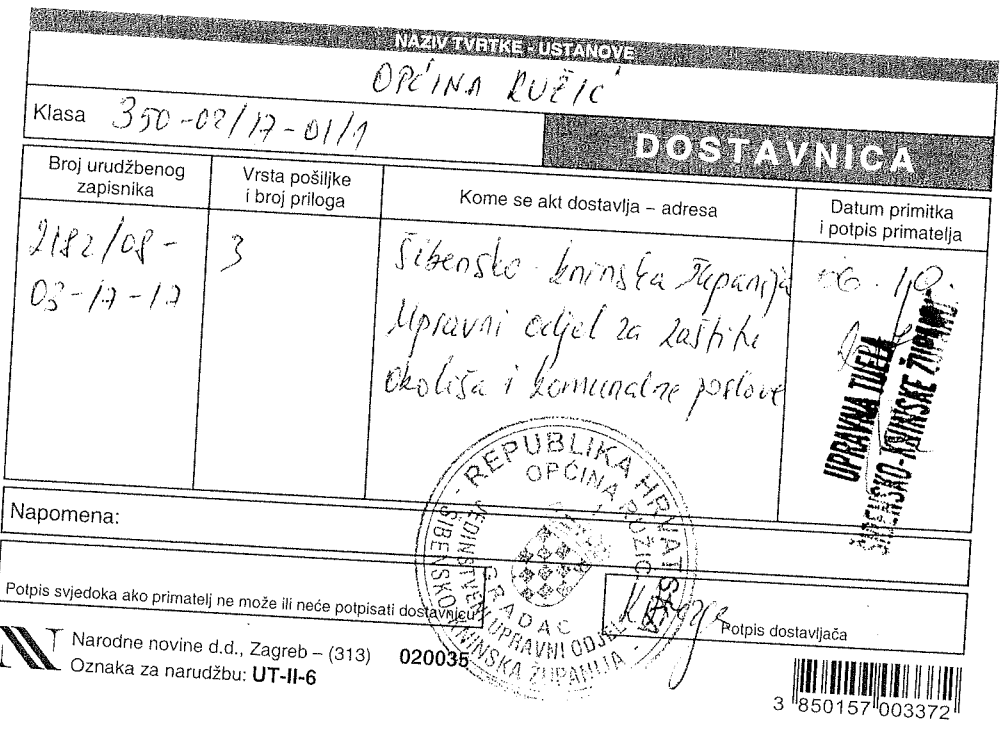 NAZIV TVRTKE - USTANOVE
OPĆINA RUŽIĆ
Klasa 350-02/17-01/1
DOSTAVNICA
Broj urudžbenog
zapisnika
Vrsta pošiljke
i broj priloga
Kome se akt dostavlja – adresa
Datum primitka
i potpis primatelja
2182/08-
03-17-17
3
Šibensko-kninska županija
Upravni odjel za zaštitu
okoliša i komunalne poslove
06.10.
UPRAVNA TIJELA
ŠIBENSKO-KNINSKE ŽUPANIJE
Napomena:
REPUBLIKA HRVATSKA
ŠIBENSKO-KNINSKA ŽUPANIJA
OPĆINA RUŽIĆ
JEDINSTVENI UPRAVNI ODJEL
GRADAC
Potpis svjedoka ako primatelj ne može ili neće potpisati dostavnicu
Potpis dostavljača
Narodne novine d.d., Zagreb – (313) 020035
Oznaka za narudžbu: UT-II-6
3 850157 003372